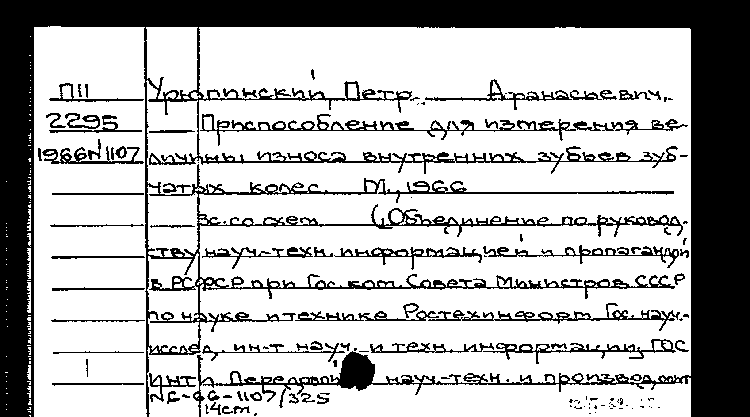 П11 Урюпинский, Петр Афанасьевич.
2295 Приспособление для измерения ве-
1966N1107 личины износа внутренних зубьев зуб-
чатых колес. М., 1966
3с. со схем. (Объединение по руковод-
ству науч.-техн. информацией и пропагандой
в РСФСР при Гос. ком. Совета Министров СССР
по науке и технике Ростехинформ. Гос. науч.-
исслед. ин-т науч. и техн. информации. ГОС
ИНТИ. Передовой науч.-техн. и производ. опыт
N6-66-1107/325
14 см.